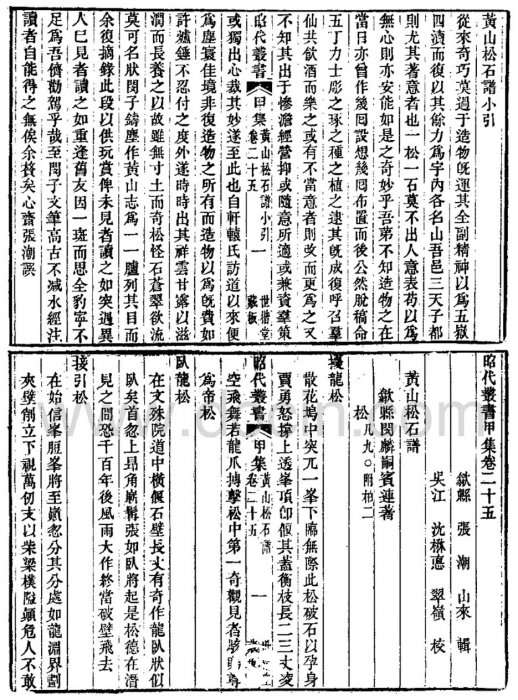 黃山松石譜小引
從來奇巧莫過于造物旣運其全副精神以爲五嶽
四瀆而復以其餘力爲宇內各名山吾邑三天子都
則尤其著意者也一松一石莫不出人意表苟以爲
無心則亦安能如是之奇妙乎吾第不知造物之在
當日亦曾作幾囘設想幾囘布置而後公然脫稿命
五丁力士彫之琢之種之植之逮其旣成復呼召羣
仙共飲酒而樂之或有不當意者則攺而更爲之又
不知其出于慘澹經營抑或隨意所適或兼資羣策
昭代叢書 甲集 黃山松石譜小引 卷二十五 一 世楷堂 藏板
或獨出心裁其妙遂至此也自軒轅氏訪道以來便
爲塵寰佳境非復造物之所有而造物以爲旣費如
許爐錘不忍付之度外遂時時出其祥雲甘露以滋
潤而長養之以故雖無寸土而奇松怪石蒼翠欲流
莫可名狀閔子鑄塵作黃山志爲一一臚列其目而
余復摘錄此段以供玩賞俾未見者讀之如突遇異
人已見者讀之如重逢舊友因一斑而思全豹寧不
足爲吾儕勸駕乎哉至閔子文筆高古不減水經注
讀者自能得之無俟余贅矣心齋張潮譔
昭代叢書甲集卷二十五
歙縣 張 潮 山來 輯
吳江 沈楙悳 翠嶺 校
黃山松石譜
歙縣閔麟嗣賓連著
松 凡九〇附柏二
擾龍松
散花塢中突兀一峯下臨無際此松破石以孕身
賈勇怒撐上透峯頂卽偃其蓋衡枝長二三丈淩
昭代叢書 甲集 黃山松石譜 卷二十五 一
空飛舞若龍爪搏擊松中第一奇觀見者
爲帝松
臥龍松
在文殊院道中橫偃石壁長丈有奇作龍臥狀似
臥矣首忽上昻角嶄鞱張如臥將起是松德在潛
見之間恐千百年後風雨大作終當破壁飛去
接引松
在始信峯脛峯將至巔忽分其分處如龍湫界劃
夾壁削立下視萬仞支以柴梁樸隘巔危人不敢